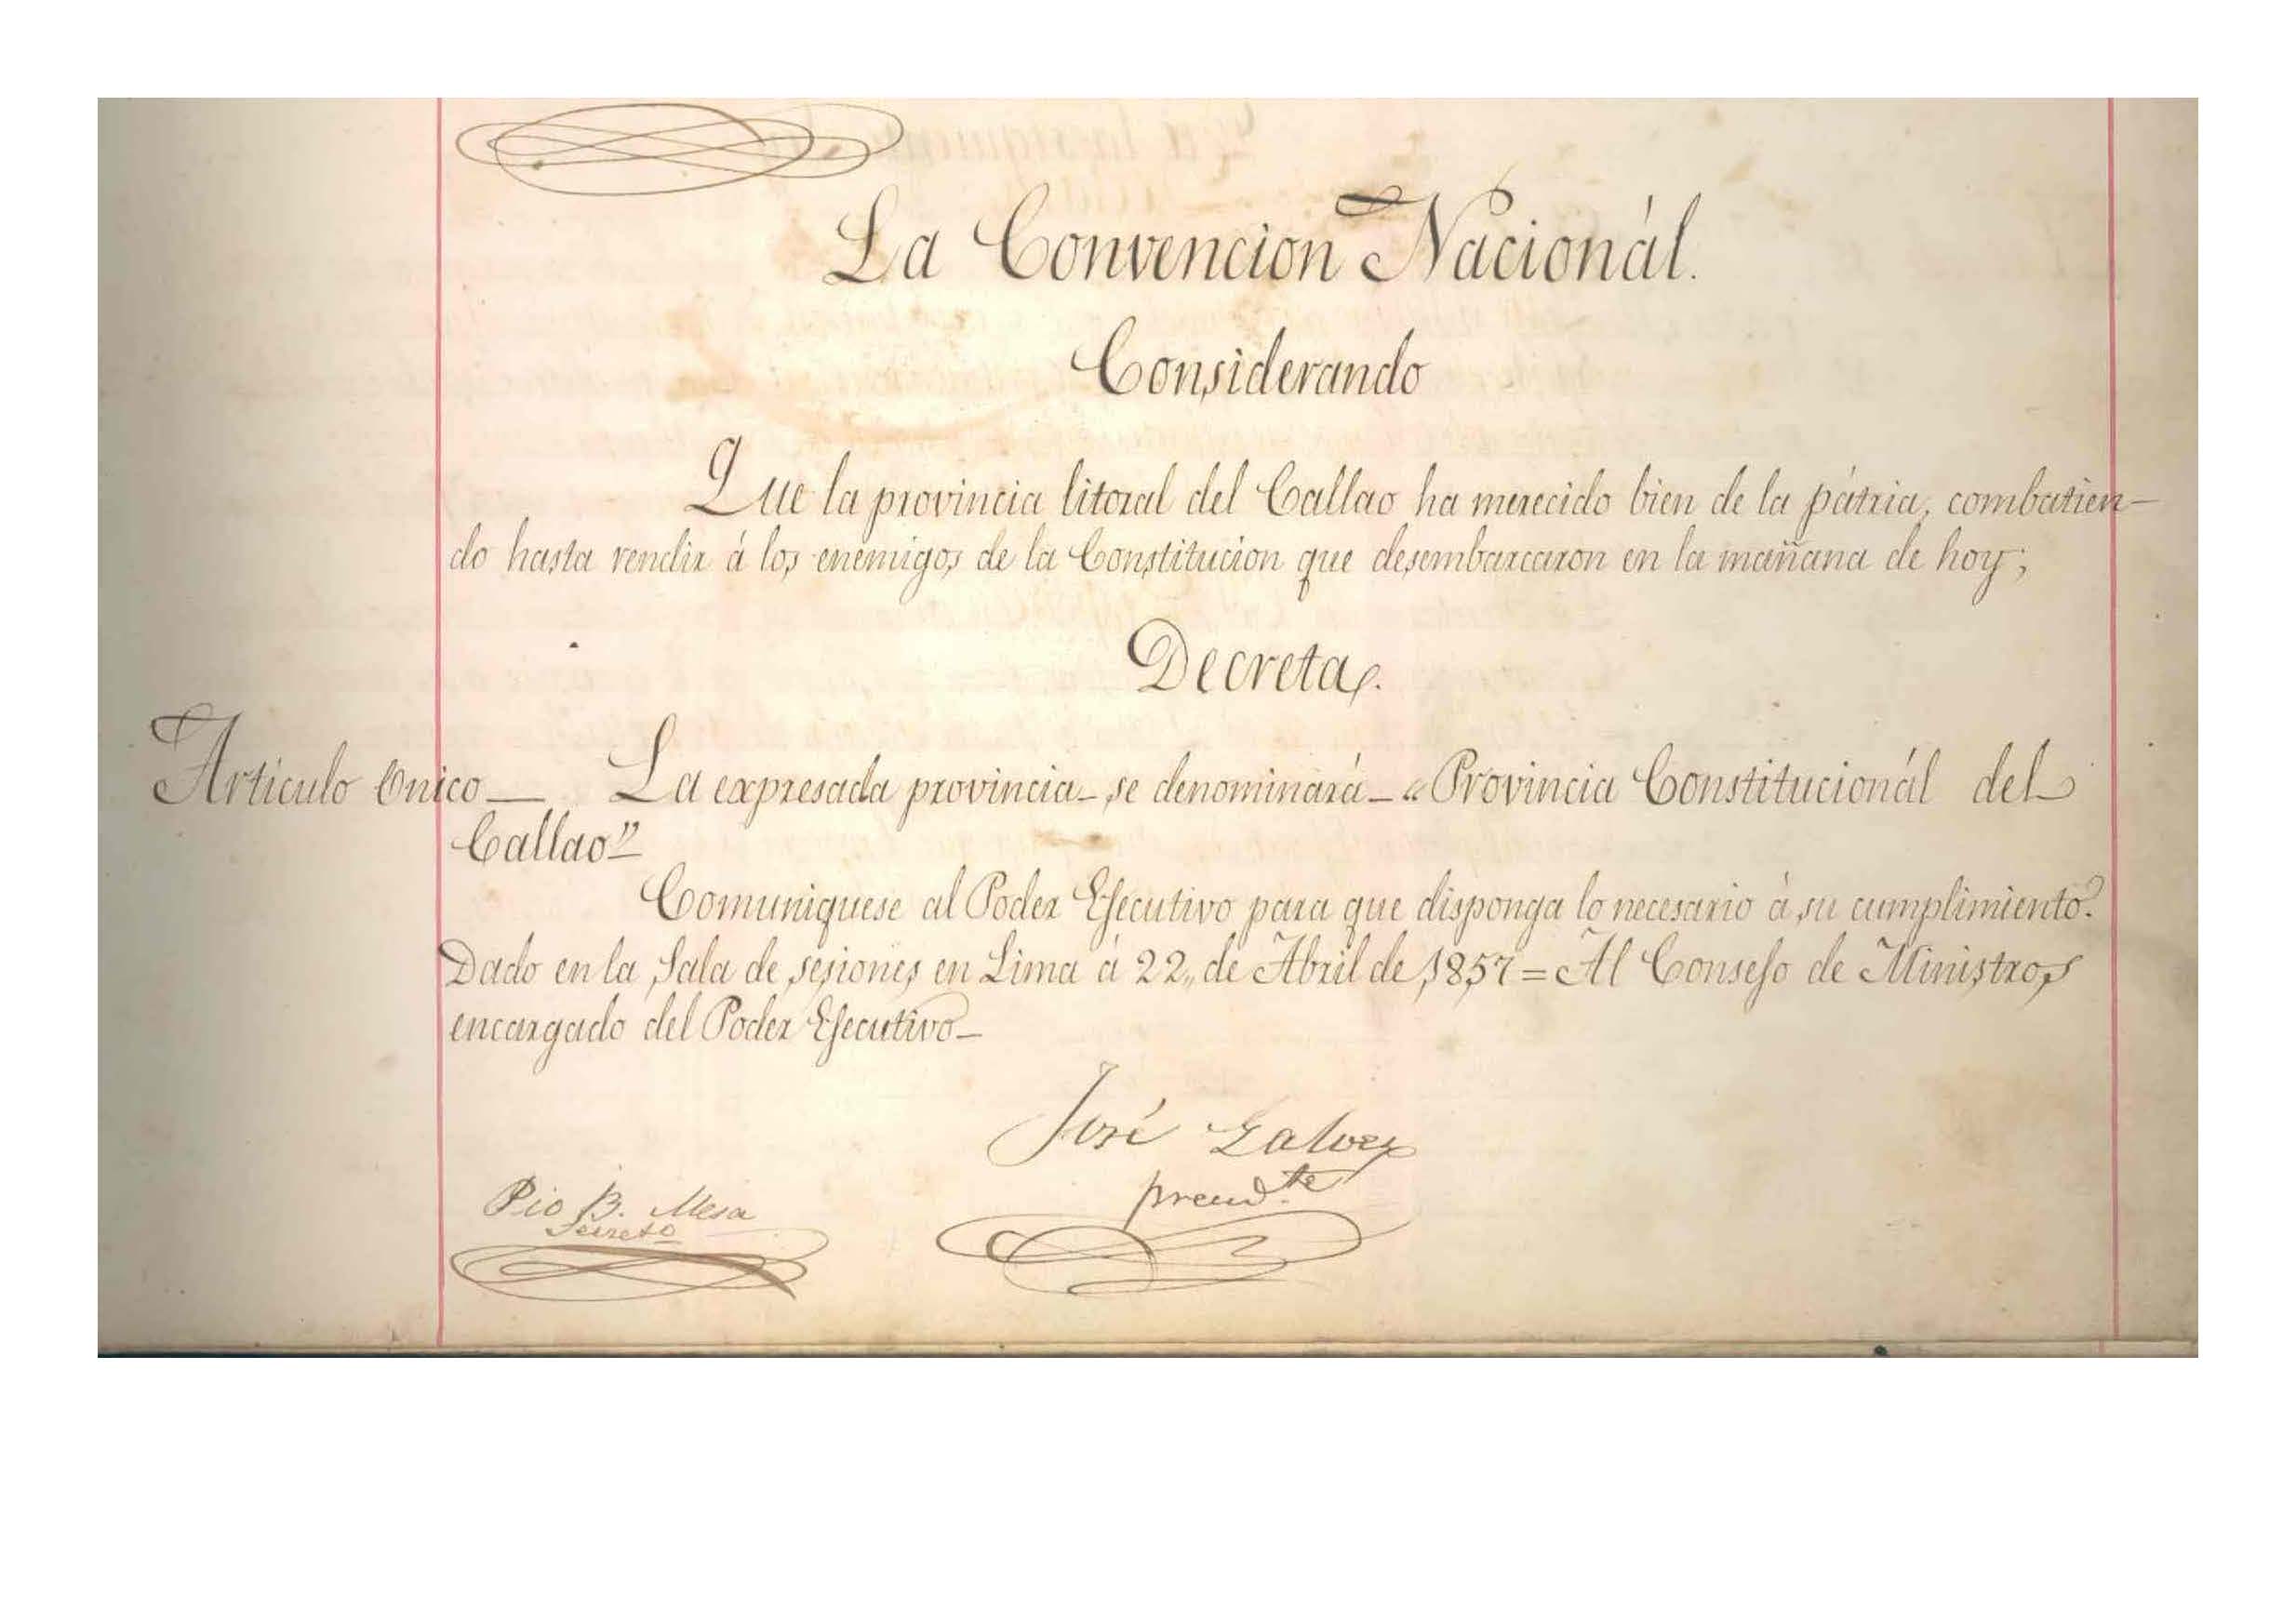 La Convencion Nacionál.
Considerando
Que la provincia litoral del Callao ha merecido bien de la pátria, combatien-
do hasta rendir á los enemigos de la Constitucion que desembarcaron en la mañana de hoy;
Decreta.
Artículo Unico — La expresada provincia - se denominará - «Provincia Constitucionál del
Callao"
Comuniquese al Poder Ejecutivo para que disponga lo necesario á su cumplimiento.
Dado en la Sala de sesiones en Lima á 22,, de Abril de 1857 = Al Consejo de Ministros
encargado del Poder Ejecutivo —
José Galvez
Pio B. Mesa
Secreto